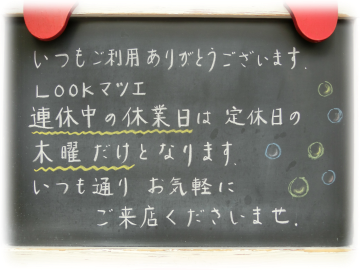 いつもご利用ありがとうございます.
LOOKマツエ
連休中の休業日は 定休日の
木曜だけとなります.
いつも通り お気軽に
ご来店くださいませ.